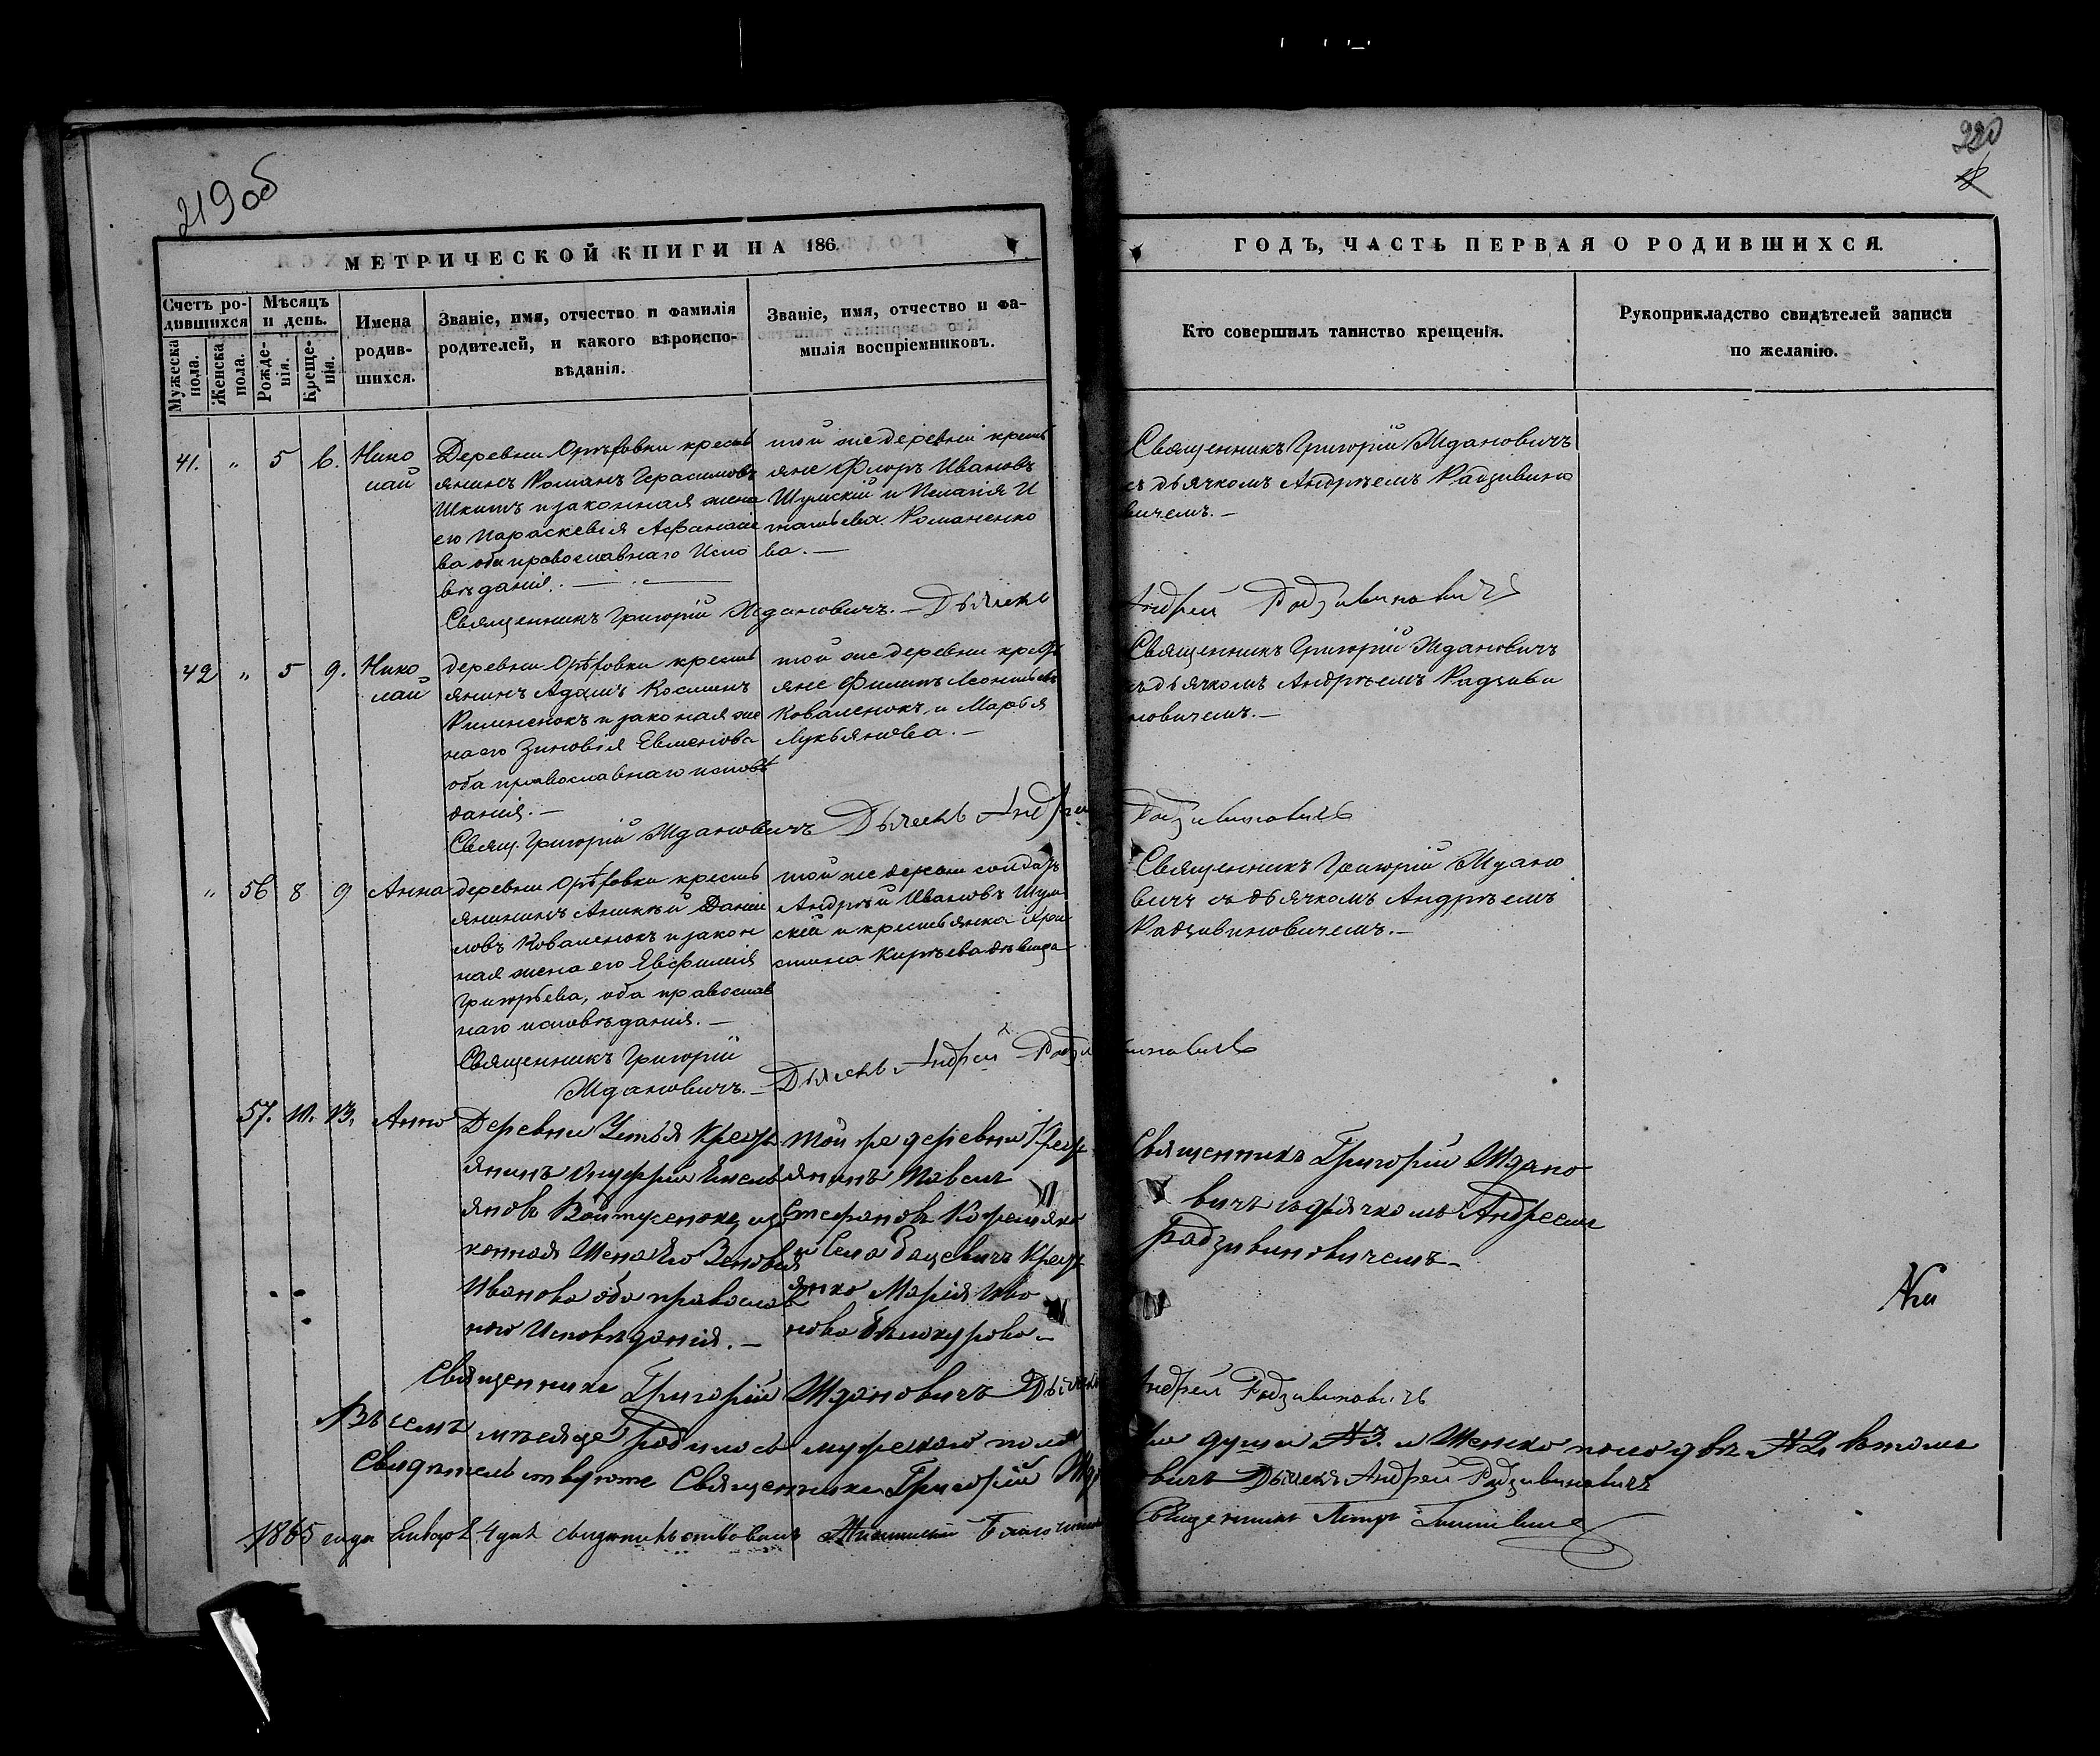 219 об
220
МЕТРИЧЕСКОЙ КНИГИ НА 186
ГОДЪ, ЧАСТЬ ПЕРВАЯ О РОДИВШИХСЯ.
Счетъ ро-
дившихся
Мужеска
пола.
Женска
пола.
Мѣсяцъ
и день.
Рожде-
нія.
Креще-
нія.
Имена
родив-
шихся.
Званіе, имя, отчество и фамилія
родителей, и какого вѣроиспо-
вѣданія.
Званіе, имя, отчество и фа-
милія воспріемниковъ.
Кто совершилъ таинство крещенія.
Рукоприкладство свидѣтелей записи
по желанію.
41. " 5 6. Нико
лай
Деревни Орѣховки крестья
янинъ Романъ Герасимовъ
Шкитъ и законная жена
его Параскевія Афанасіе
ва оба православнаго Испо
вѣданія. —
той же деревни крестья
яне Флоръ Ивановъ
Шумскій и Пелагія И
гнатьева Романенко
ва. —
Священникъ Григорій Ждановичъ
съ дьячкомъ Андреемъ Радзивино
вичемъ. —
Священникъ Григорій Ждановичъ. — Дьячекъ
Андрей Радзивиновичъ
42 " 5 9. Нико
лай
деревни Орѣховки крестья
янинъ Адамъ Косминъ
и законная же
на его Зиновія Евменова
оба православнаго исповѣ
данія. —
той же деревни кресть
яне Филипъ Леонтьевъ
Коваленокъ и Марѳія
Лукьянова. —
Священникъ Григорій Ждановичъ
съ дьячкомъ Андреемъ Радзиви
новичемъ. —
Свящ. Григорій Ждановичъ Дьячекъ Андрей
Радзивиновичъ
" 56 8 9 Анна
деревни Орѣховки кресть
янининъ Аникѣй Дании
ловъ Коваленокъ и закон
ная жена его Евфимія
Григорьева, оба православ
наго исповѣданія. —
той же деревни солдатъ
Андрей Ивановъ Шум
скій и крестьянка Хри
стина Кирѣева дѣвица
Священникъ Григорій Ждано
вичъ съ дьячкомъ Андреемъ
Радзивиновичемъ. —
Священникъ Григорій
Ждановичъ. — Дьячекъ Андрей Радзивиновичъ
57. 11. 13. Анна
Деревни Устья Крест
янинъ Онуфрій Емель
яновъ Войтусенокъ и за
конная Жена Его Зеновія
Иванова оба православ
наго Исповѣданія. —
той же деревни Крест
янинъ Павелъ
Стефановъ
и Села Крест
янка Марія Ива
нова
Священникъ Григорій Ждано
вичъ съ дьячкомъ Андреемъ
Радзивиновичемъ —
Священникъ Григорій Ждановичъ Дьячекъ
Андрей Радзивиновичъ
Въ семъ мѣсяцѣ Родилось мужескаго пола
души №3. и Женска пола двѣ №2, въ томъ
Свидѣтельствуютъ Священникъ Григорій Ждано
вичъ Дьячекъ Андрей Радзивиновичъ
1865 года Января 4 дня свидѣтельствовалъ Благочинный
Священникъ Петръ